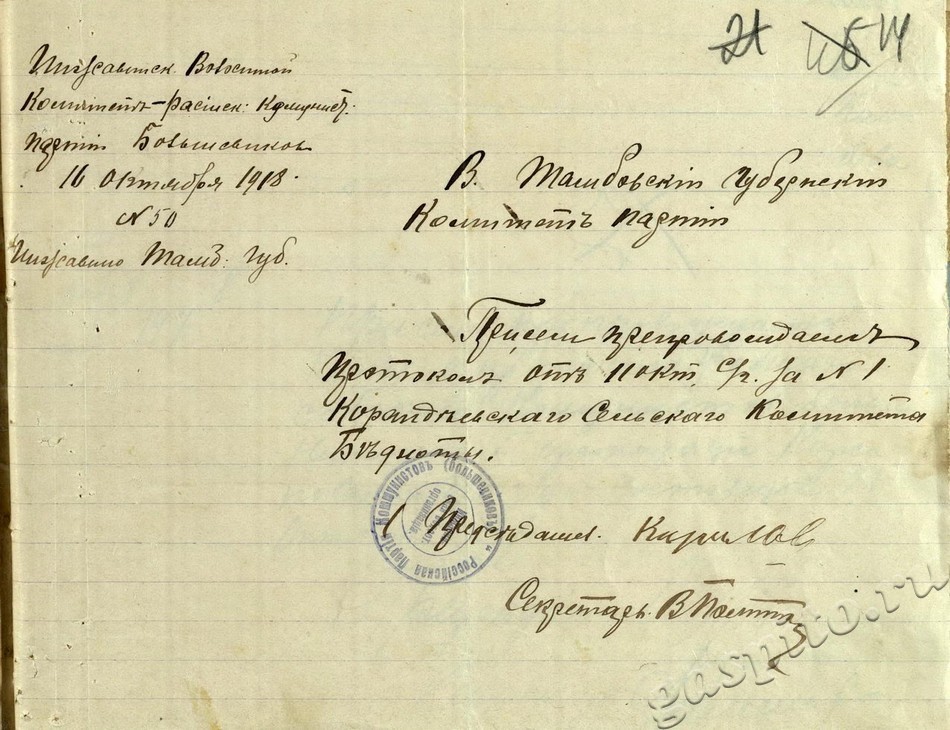 21 514
Инжавинск. Волостной
Комитетъ россиск: Комунист:
партiи Большевиков
16 Октября 1918.
N 50
Инжавино Тамб: Губ.
В. Тамбовскiй Губернскiй
Комитетъ партiи
При сем препровождаемъ
протоколъ отъ 11 окт. С/г. за N 1
Корандѣевскаго Сельскаго Комитета
Бѣдноты.
Предсѣдател. Кирилов
Секретарь В
Россiйская Партiя Коммунистовъ (большевиковъ)
gaspito.ru